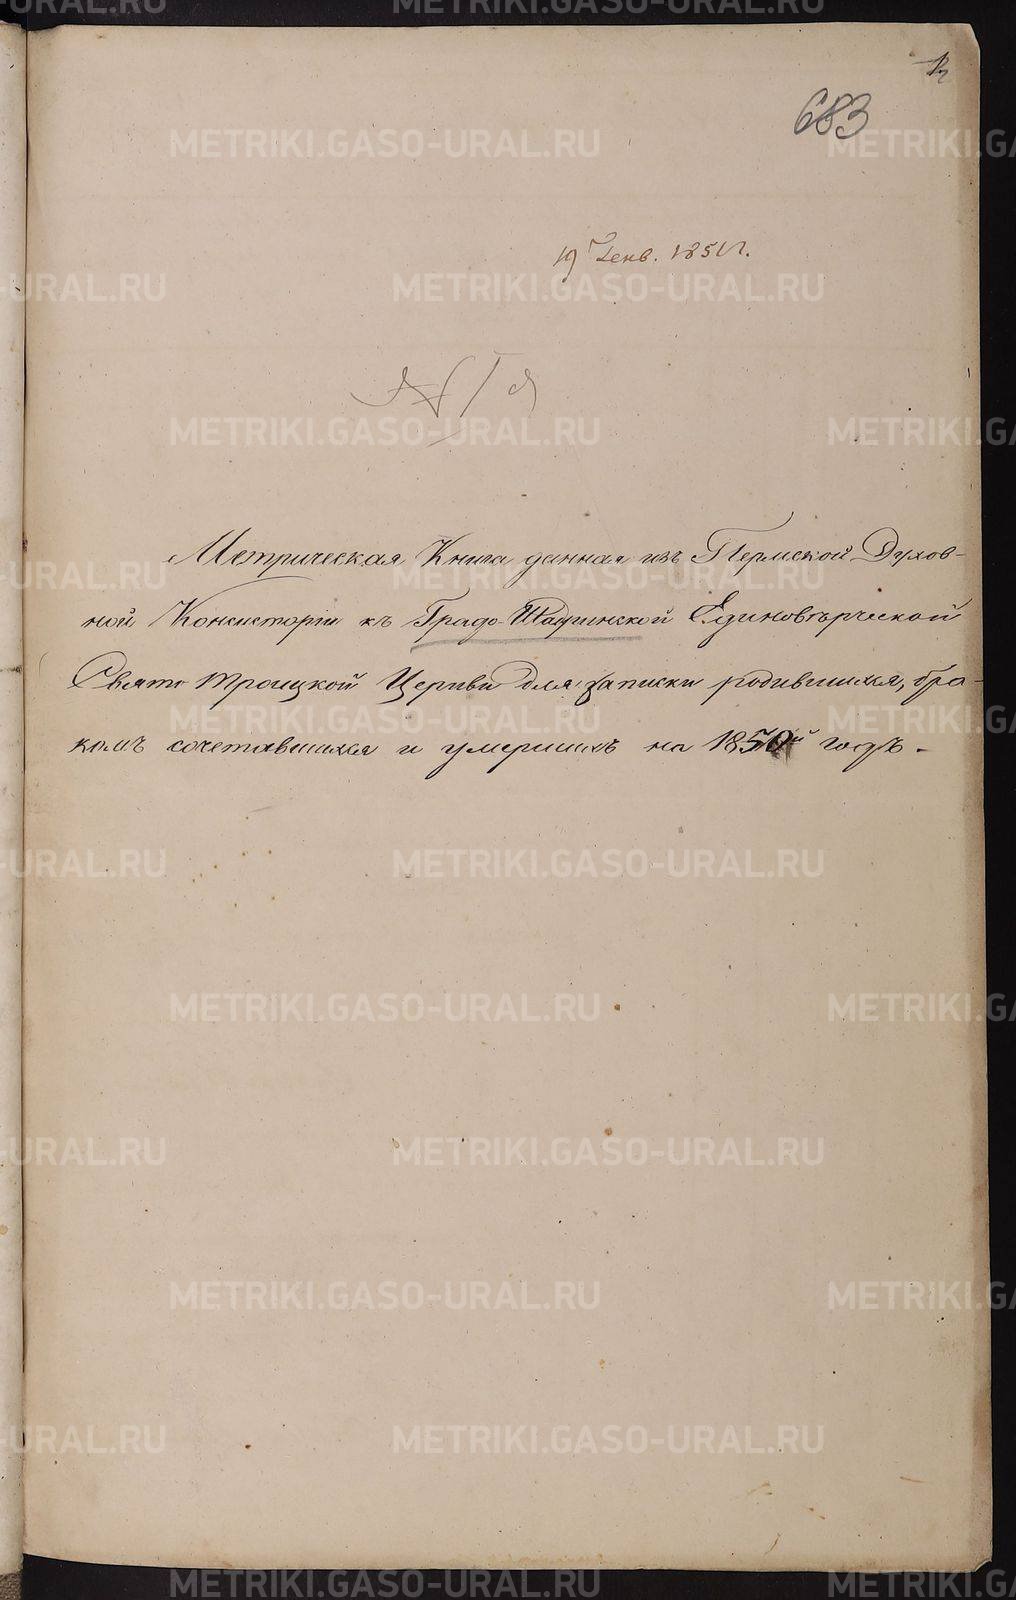 683
19 Генв. 1851 г.
Метрическая Книга данная изъ Пермской Духов-
ной Консисторіи къ Градо-Шадринской Единовѣрческой
Свято Троицкой Церкви для записки родившихся, бра-
комъ сочетавшихся и умершихъ на 1850й годъ.
METRIKI.GASO-URAL.RU